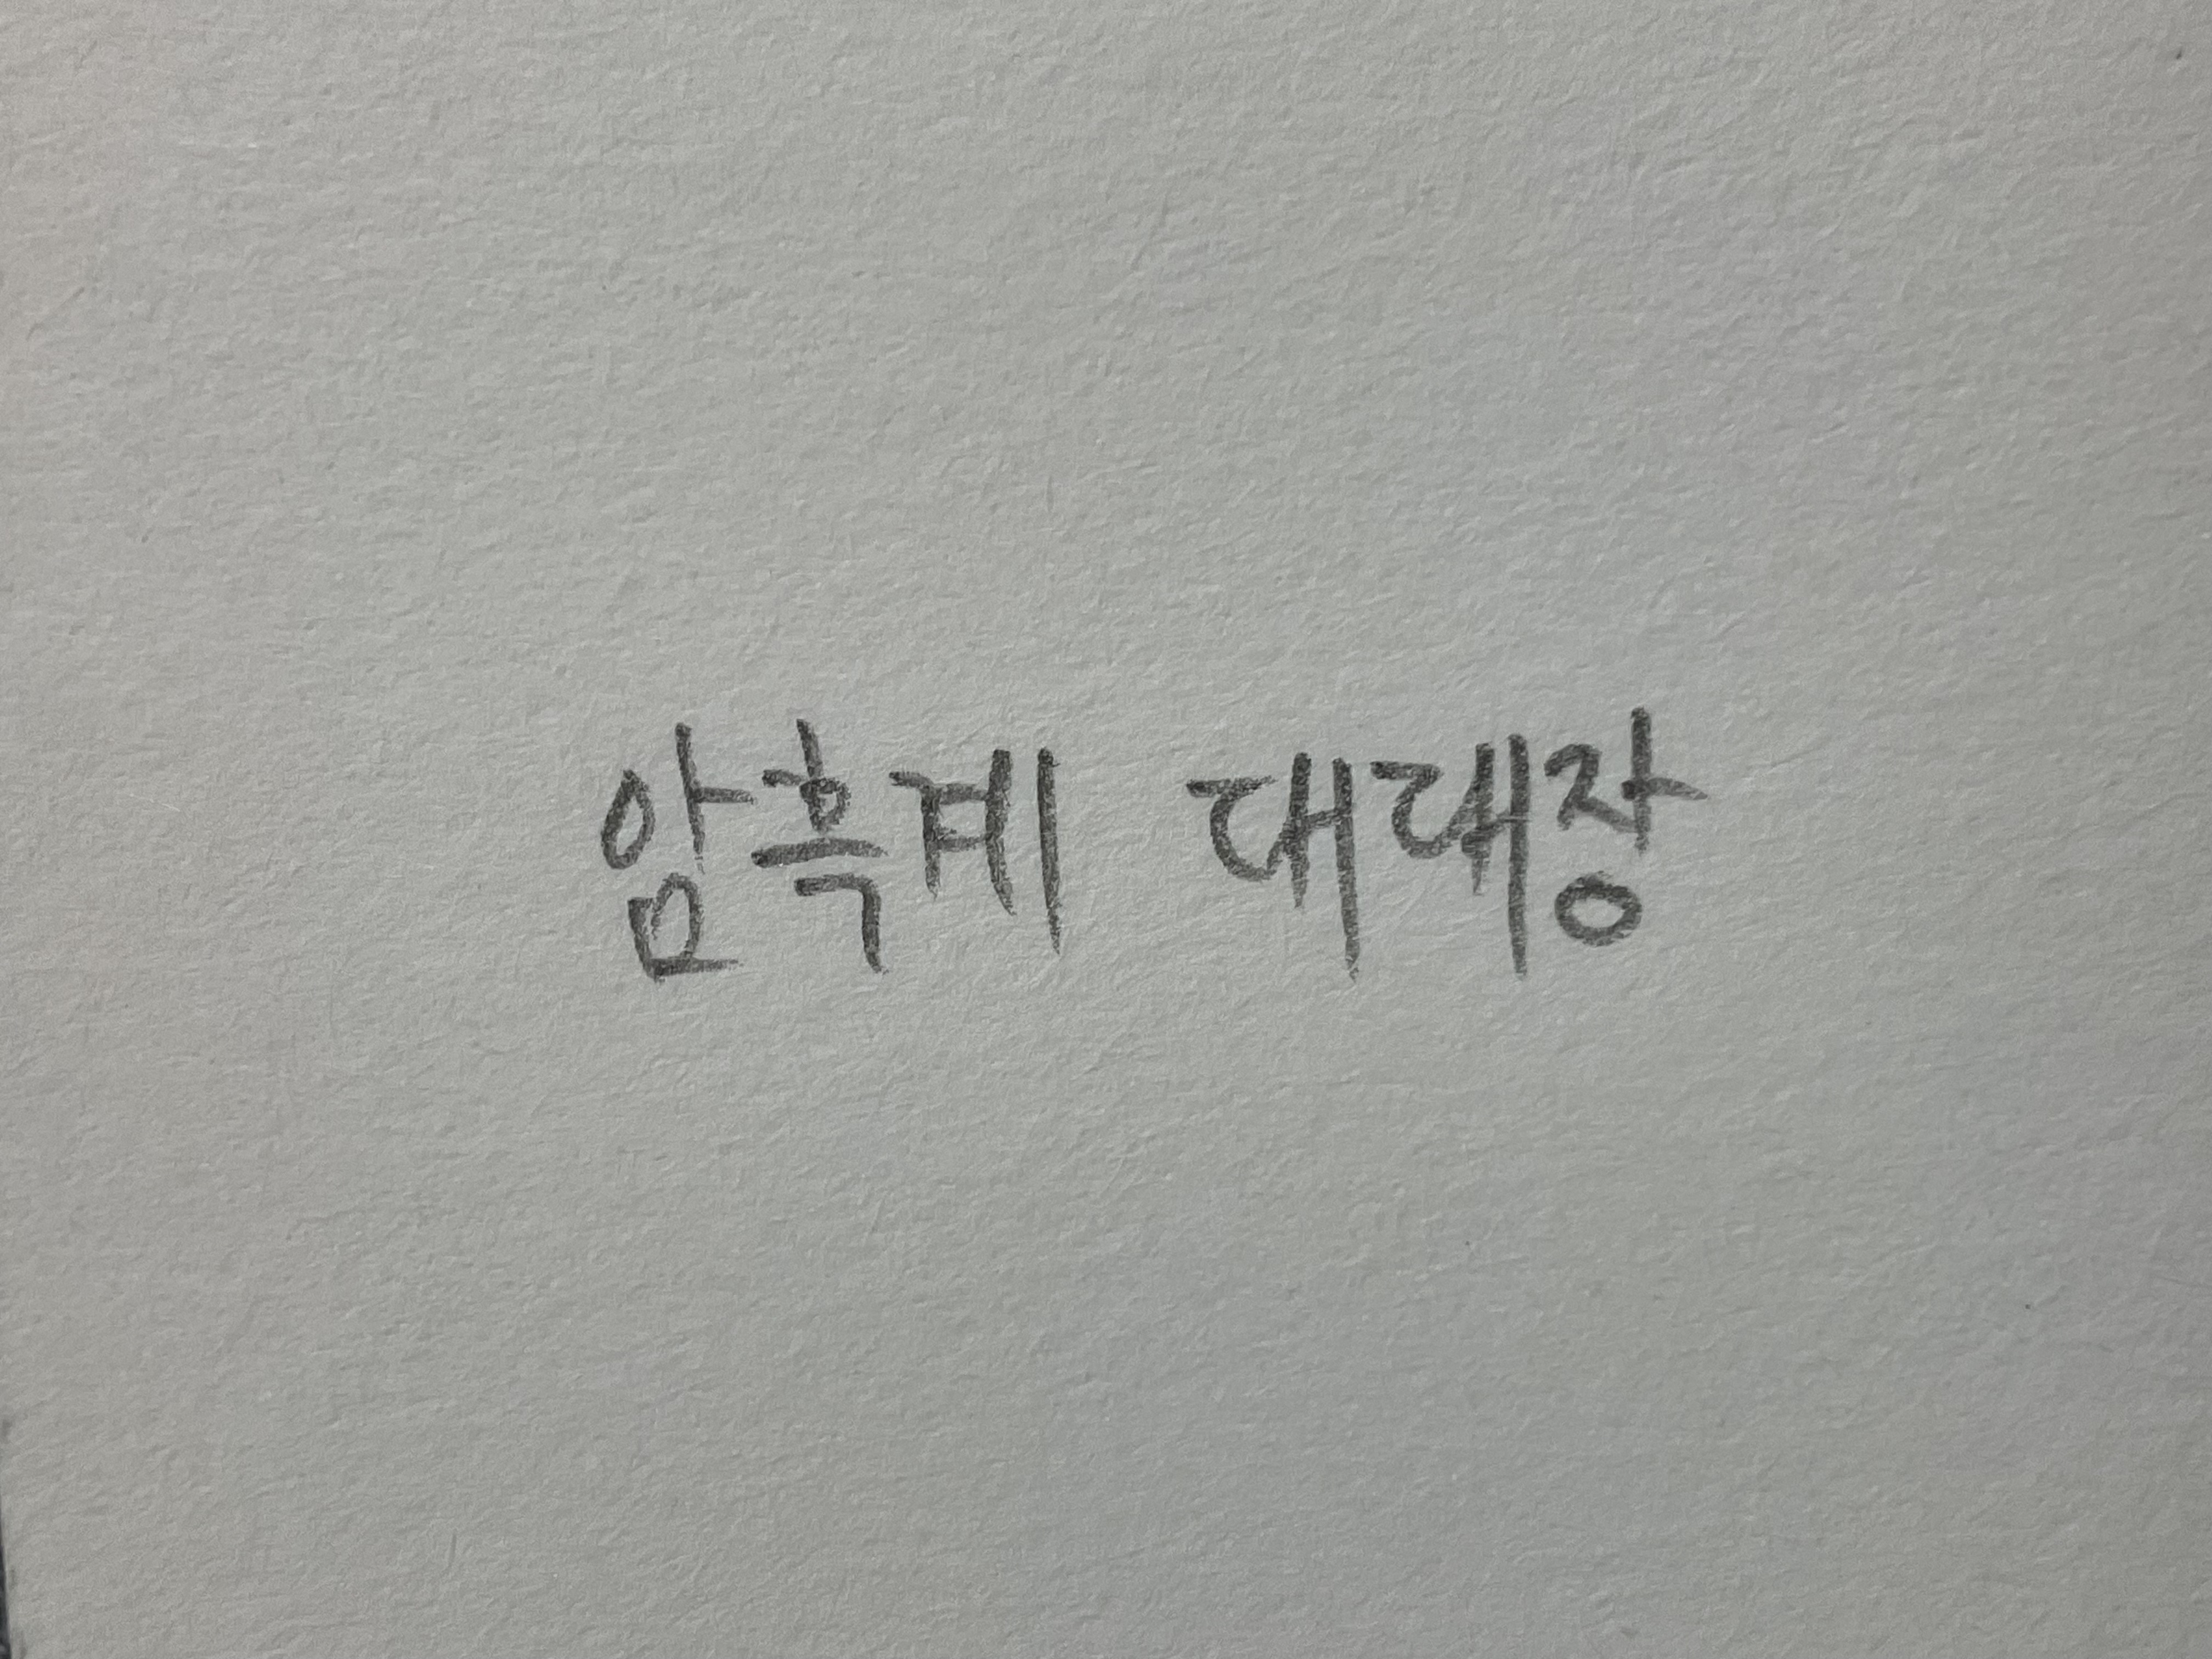 암흑계 대대장